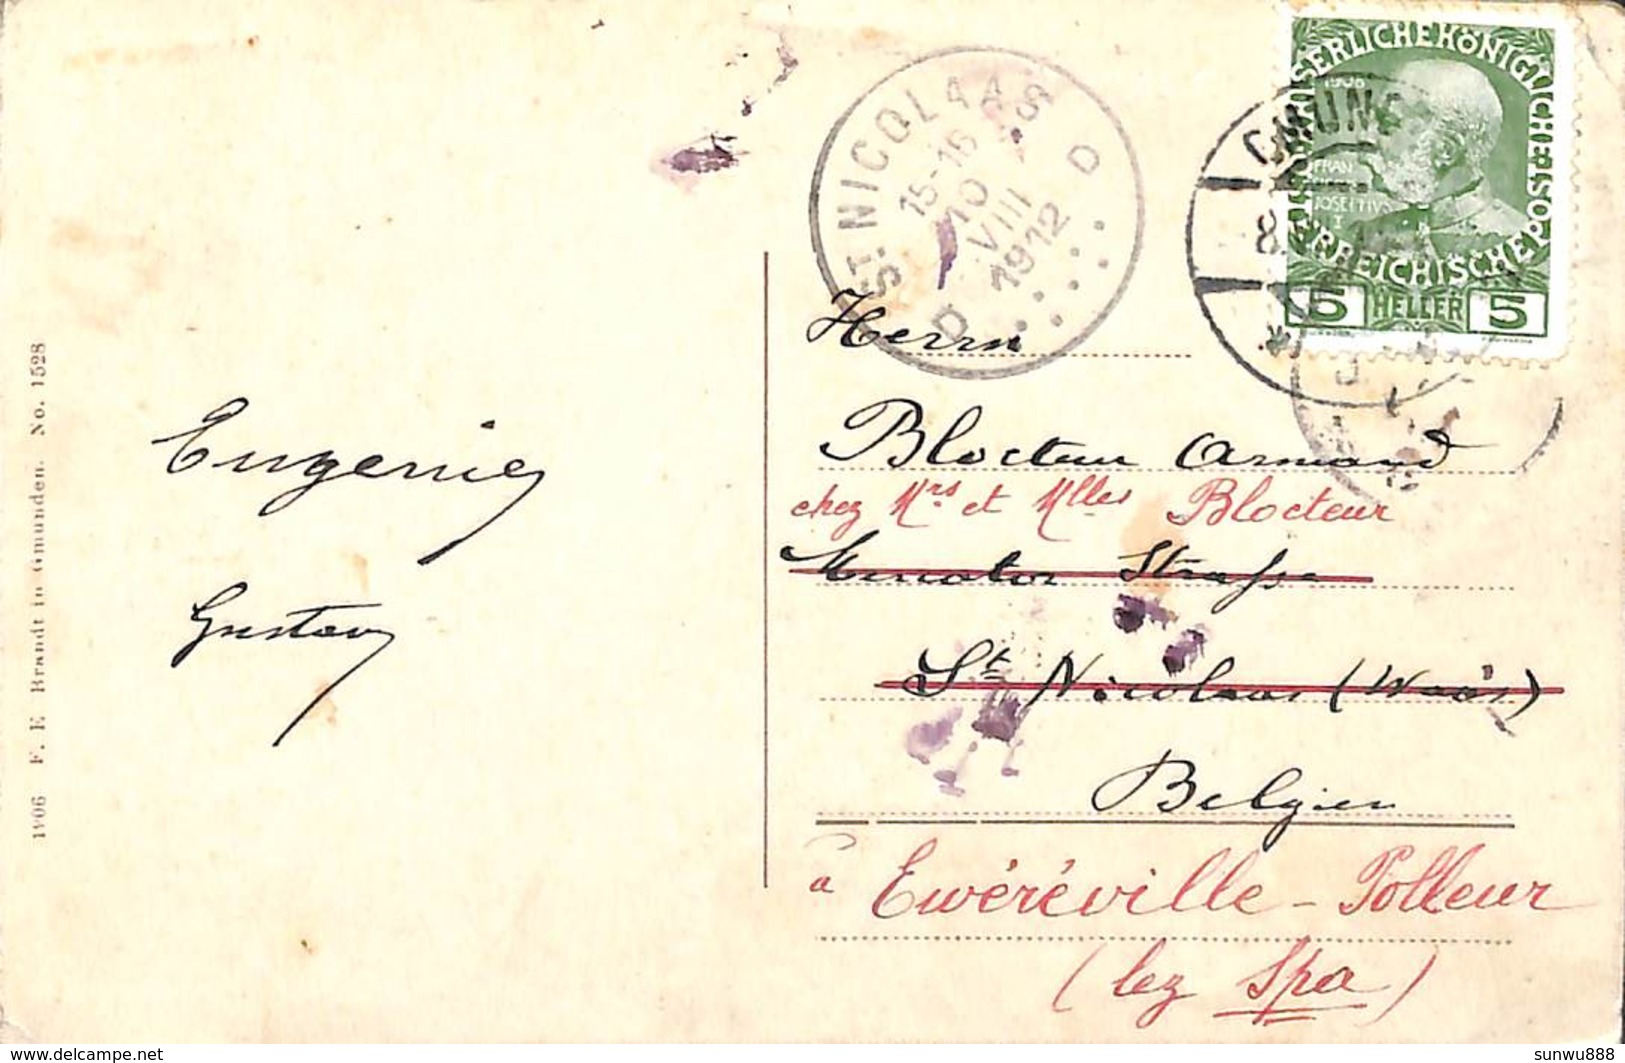 1906 F. E. Brandt in Gmunden. No. 1528
Eugenie
Gustav
ST. NICOLAAS
15-16
10
VIII
1912
D D
KAISERLICHEKÖNIGLICHE ÖSTERREICHISCHEPOST
1908
FRAN
JOSEF
5 HELLER 5
GMUND
8
Herrn
Blocteur Armand
chez Mrs et Mlles Blocteur
Mercator Strasse
St Nicolaas (Waas)
Belgien
à Ewéréville - Polleur
(lez Spa)
sunwu888